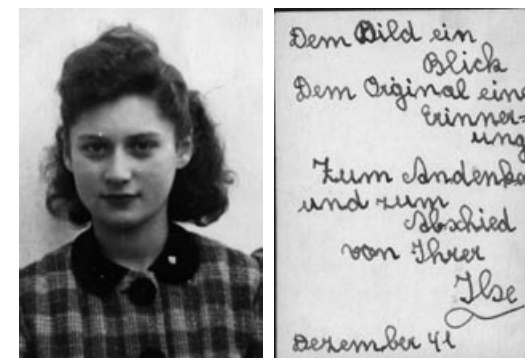 Dem Bild ein
Blick
Dem Original eine
Erinner=
ung
Zum Andenke
und zum
Abschied
von Ihrer
Ilse
Dezember 41